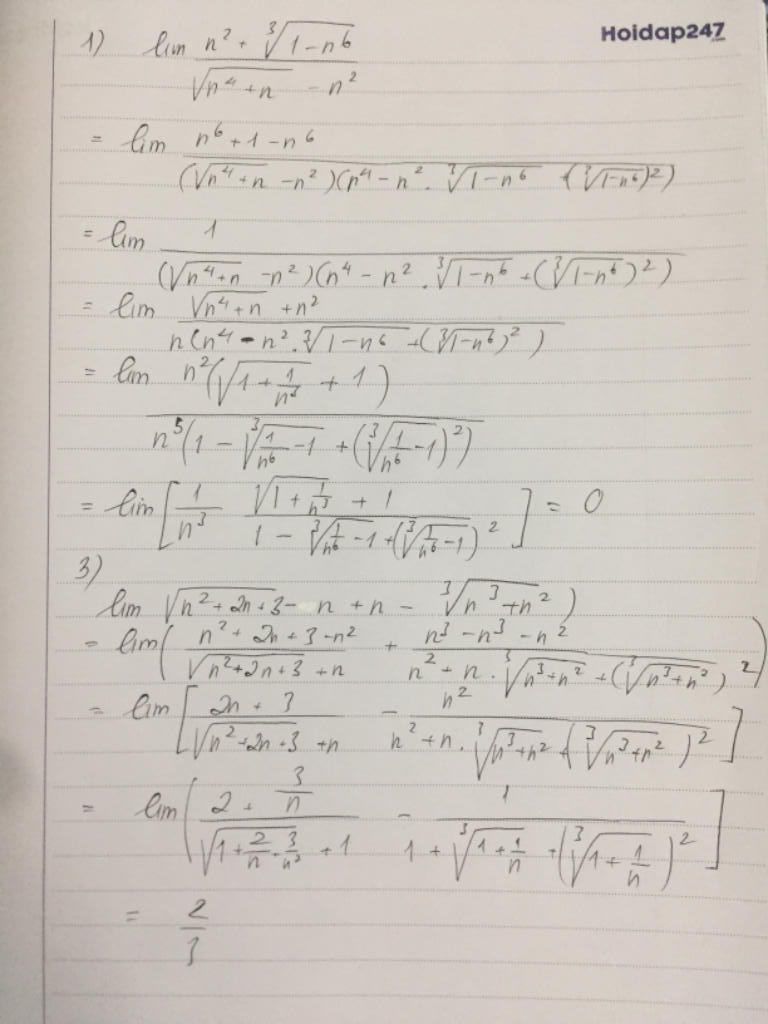 Hoidap247
1) lim (n² + ∛(1-n⁶)) / (√(n⁴+n) - n²)
= lim (n⁶ + 1 - n⁶) / ((√(n⁴+n) - n²)(n⁴ - n² . ∛(1-n⁶) + (∛(1-n⁶))²))
= lim 1 / ((√(n⁴+n) - n²)(n⁴ - n² . ∛(1-n⁶) + (∛(1-n⁶))²))
= lim (√(n⁴+n) + n²) / (n(n⁴ - n² . ∛(1-n⁶) + (∛(1-n⁶))²))
= lim n²(√(1 + 1/n³) + 1) / (n⁵(1 - ∛(1/n⁶ - 1) + (∛(1/n⁶ - 1))²))
= lim [1/n³ (√(1 + 1/n³) + 1) / (1 - ∛(1/n⁶ - 1) + (∛(1/n⁶ - 1))²)] = 0
3)
lim √(n² + 2n + 3) - n + n - ∛(n³ + n²))
= lim((n² + 2n + 3 - n²) / (√(n² + 2n + 3) + n) + (n³ - n³ - n²) / (n² + n . ∛(n³ + n²) + (∛(n³ + n²))²))
= lim [(2n + 3) / (√(n² + 2n + 3) + n) - n² / (n² + n . ∛(n³ + n²) + (∛(n³ + n²))²)]
= lim((2 + 3/n) / (√(1 + 2/n + 3/n²) + 1) - 1 / (1 + ∛(1 + 1/n) + (∛(1 + 1/n))²)]
= 2/3